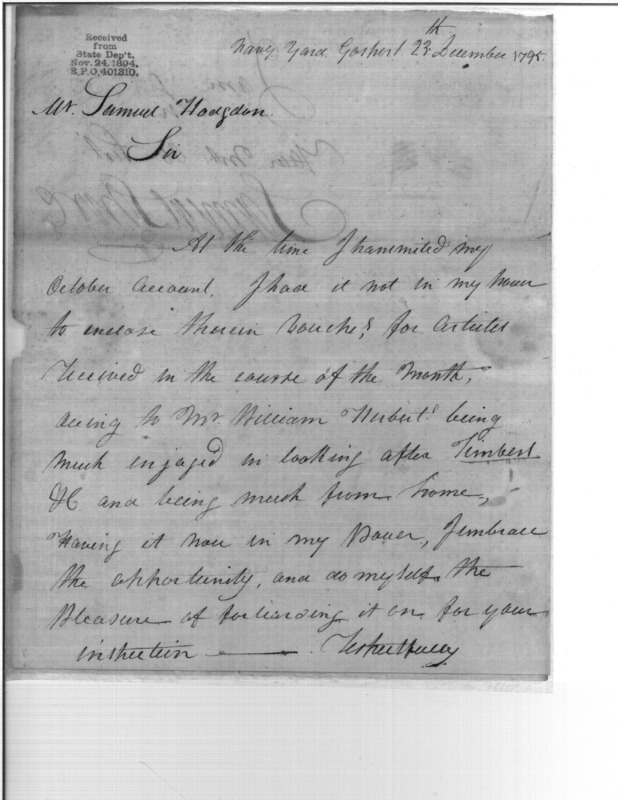 Received
from
State Dep't.
Nov. 24. 1894.
R.P.O. 401310.
Navy Yard Gosport 23th December 1795.
Mr. Samuel Hodgdon.
Sir
At the time I transmited my
October account, I had it not in my power
to enclose therein Vouchers for articles
received in the course of the Month,
owing to Mr. William Herbert's being
much engaged in looking after Timbers
&C. and being much from home,
Having it now in my Power, I embrace
the opportunity, and do myself the
Pleasure of forwarding it on for your
inspection Respectfully